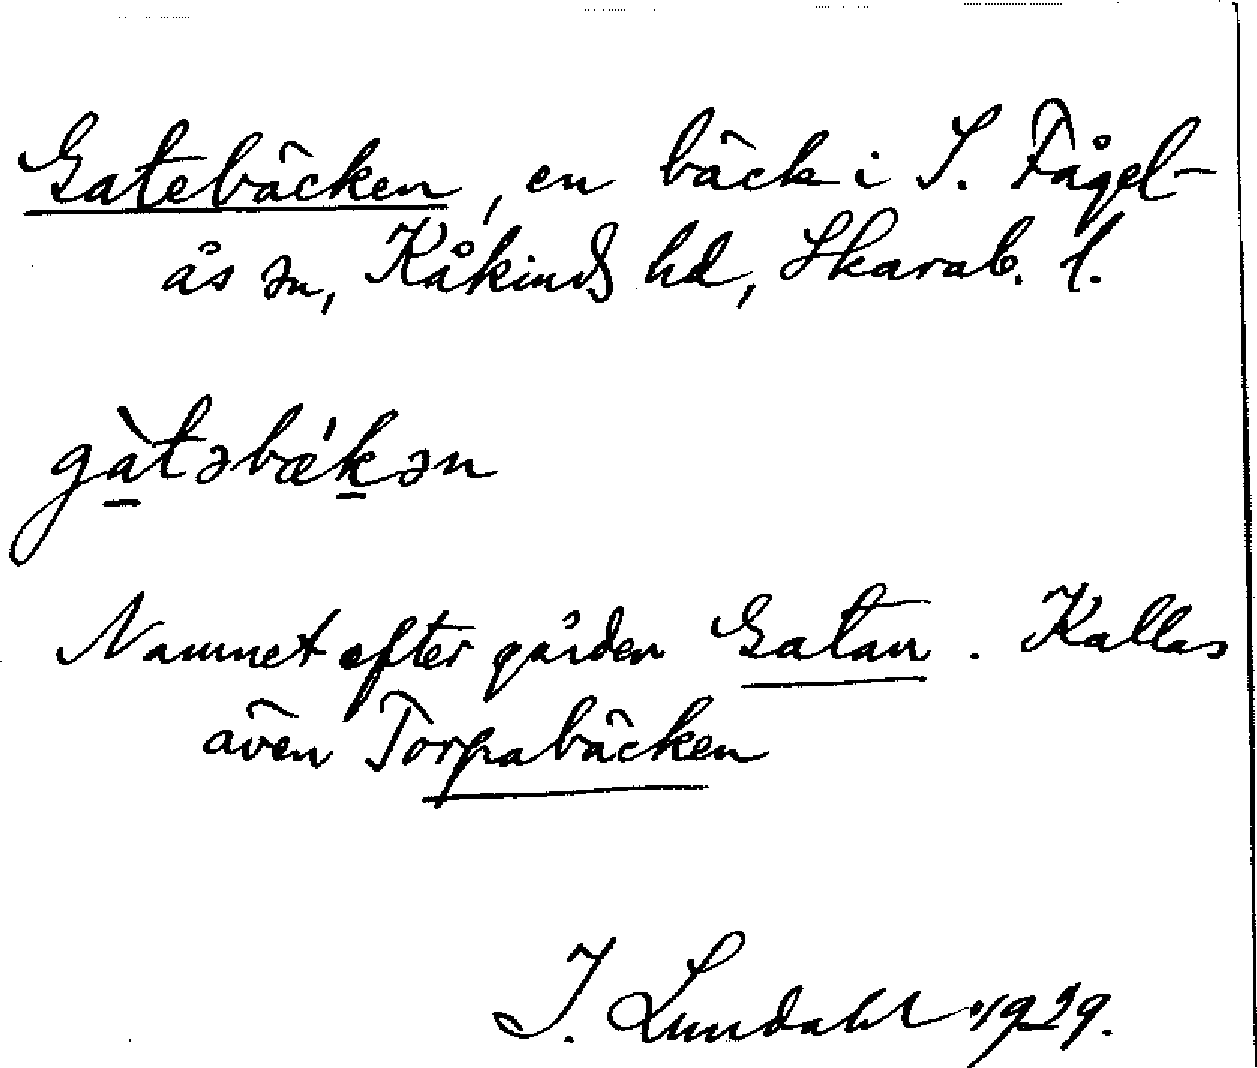 Gatebäcken, en bäck i S. Fågel-
ås sn, Kåkinds hd, Skarab. l.
gàtəbǽkən
Namnet efter gården Gatan. Kallas
även Torpabäcken
I. Lundahl 1929.